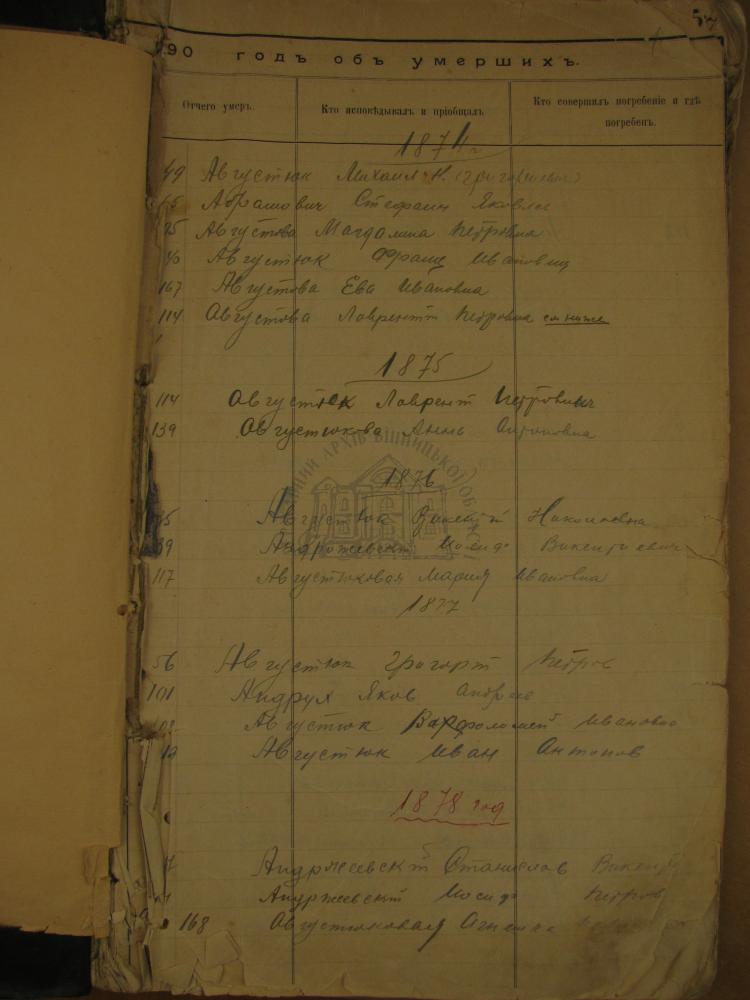 57
90 годъ объ умершихъ.
Отчего умеръ. Кто исповѣдывалъ и пріобщалъ Кто совершилъ погребеніе и гдѣ погребенъ.
1874 г
49 Августюк Михаил
Абрамович Стефан Яковлев
Августова Магдалина Петровна
Августюк Франц Иванович
167 Августова Ева Ивановна
114 Августова Лаврентт Петровна см ниже
1875
114 Августюк Лаврент Петрович
139 Августюкова Аннь Антоновна
1876
Августюк Викентт Николаевна
39 Андрожевскт Иосиф Викентиевич
117 Августюковая Мария Ивановна
1877
56 Августюк Григорт Петров
101 Андрух Яков Андреев
Августюк Варфоломей Ивановна
Августюк Иван Антонов
1878 год
Андржеевскт Станислов Викент
Андржеевскт Иосиф Петров
168 Августюковая Агнешка